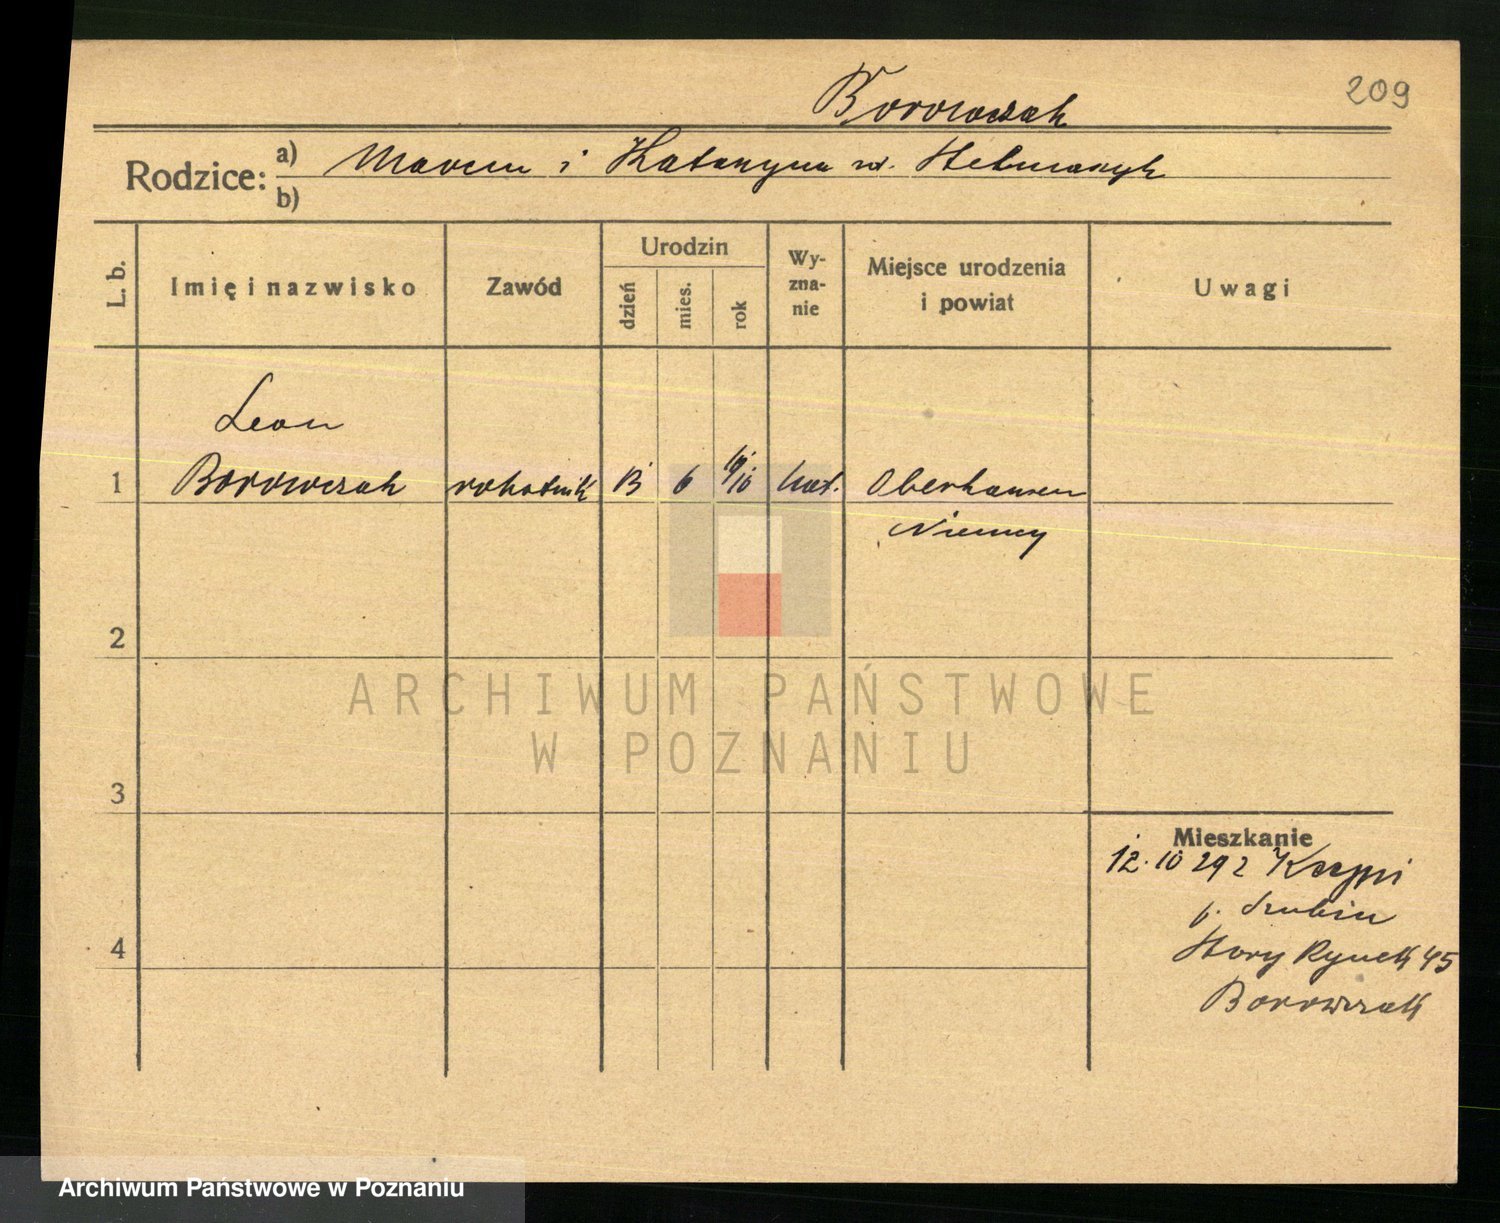 209
Borowczak
Rodzice: a) Marcin i Katarzyna
b)
L. b. Imię i nazwisko Zawód Urodzin dzień mies. rok Wy-zna-nie Miejsce urodzenia i powiat Uwagi
Leon
1 Borowczak robotnik 13 6 10 kat. Oberhausen
Niemcy
2
3
4
Mieszkanie
12. 10 29 z Kcyni
p. Szubin
Stary Rynek 45
Borowczak
ARCHIWUM PAŃSTWOWE
W POZNANIU
Archiwum Państwowe w Poznaniu